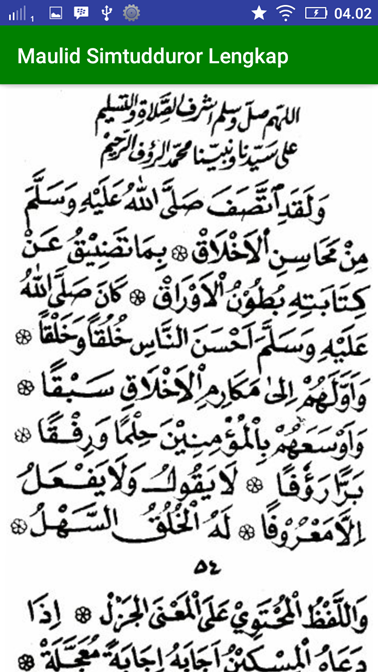 04.02
Maulid Simtudduror Lengkap
اللهم صل وسلم اشرف الصلاة والتسليم
على سيدنا ونبينا محمد الرؤف الرحيم
وَلَقَدِ اتَّصَفَ صَلَّى اللهُ عَلَيْهِ وَسَلَّمَ
مِنْ مَحَاسِنِ الْاَخْلَاقِ ۞ بِمَا تَضِيْقُ عَنْ
كِتَابَتِهِ بُطُوْنُ الْاَوْرَاقِ ۞ كَانَ صَلَّى اللهُ
عَلَيْهِ وَسَلَّمَ اَحْسَنَ النَّاسِ خُلُقًا وَخَلْقًا ۞
وَاَوَّلَهُمْ اِلَى مَكَارِمِ الْاَخْلَاقِ سَبْقًا ۞
وَاَوْسَعَهُمْ بِالْمُؤْمِنِيْنَ حِلْمًا وَرِفْقًا ۞
بَرًّا رَؤُفًا ۞ لَا يَقُوْلُ وَلَا يَفْعَلُ
اِلَّا مَعْرُوْفًا ۞ لَهُ الْخُلُقُ السَّهْلُ ۞
٥٤
وَاللَّفْظُ الْمُحْتَوِيْ عَلَى الْمَعْنَى الْجَزْلِ ۞ اِذَا
دَعَاهُ الْمِسْكِيْنُ اَجَابَهُ اِجَابَةً مُعَجَّلَةً ۞